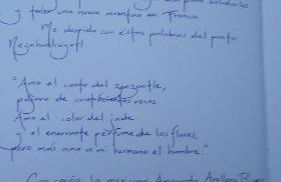 y tener una nueva aventura en Francia.
Me despido con estas palabras del poeta
Nezahualcóyotl
"Amo el canto del zenzontle,
pájaro de cuatrocientas voces.
Amo el color del jade
y el enervante perfume de las flores,
pero más amo a mi hermano el hombre."
Con cariño, la